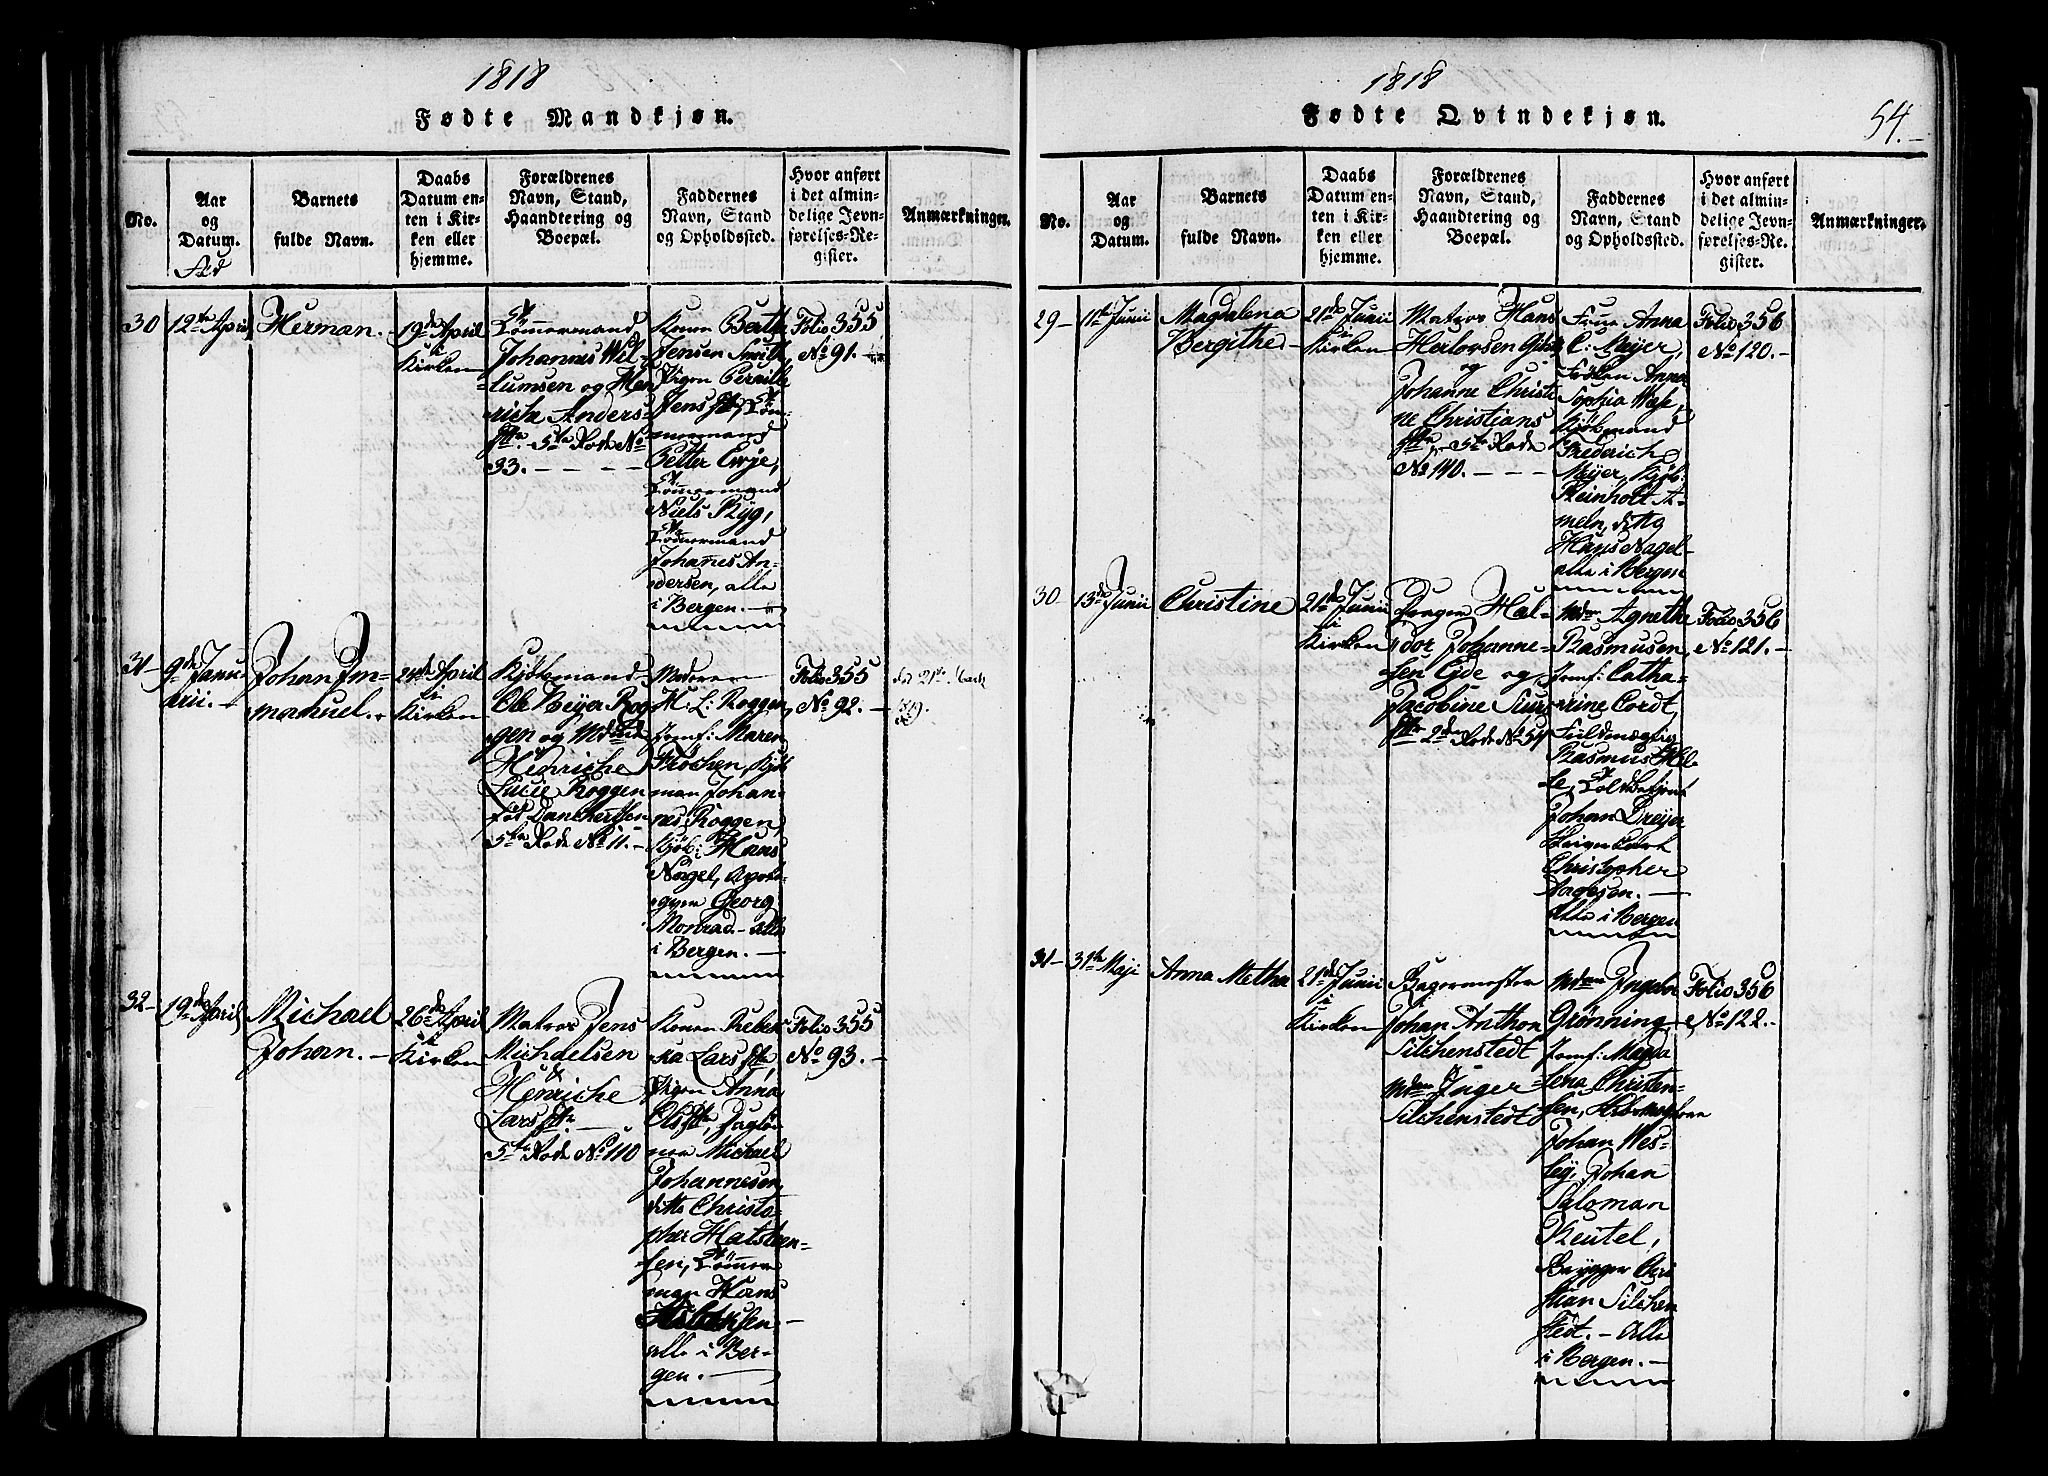 1818
Fødte Mandkjøn.
No.
Aar
og
Datum.
Barnets
fulde Navn.
Daabs
Datum en-
ten i Kir-
ken eller
hjemme.
Forældrenes
Navn, Stand,
Haandtering og
Boepæl.
Faddernes
Navn, Stand
og Opholdssted.
Hvor anført
i det almin-
delige Jevn-
førelses-Re-
gister.
Anmærkninger.
30
12te April
Herman.
19de April
i
Kirken
Tømmermand
Johannes Wil-
lumsen og Hen
riche Anders-
5te Rode No
93.
Konen Berthe
Jensen Smith,
Pigen Pernille
Jens
mermand
Petter Croje,
Tømmermand
Niels Ryg,
Tømmermand
Johannes An-
dersen, alle
i Bergen.
Folio 355
No 91.
31
9de Janu-
arii.
Johan Im-
manuel.
24de April
i
Kirken
Kjøbmand
Ole Meyer Rog-
gen og Mdme
Henriche
Lucie Roggen
fød Danchertsen
5te Rode No 11.
Moderen
H. L: Roggen
Jomf: Maren
Frochen, Kjøb
man Johan-
nes Roggen,
Kjøb: Hans
Nagel, Apote-
geren Georg
Monrad - alle
i Bergen.
Folio 355
No 92.
32
19de April
Michael
Johan.
26de April
i
Kirken
Matros Jens
Michaelsen
&
Henriche
Lars
5te Rode No 110
Konen Rebek
ka Lars
Pigen Anna
Ols, Dagløn
ner Michael
Johannesen,
ditto Christo-
pher Halsteen-
sen, Tømmer
man Hans
alle i Ber-
gen.
Folio 355
No 93.
1818
Fødte Qvindekjøn.
54.
No.
Aar
og
Datum.
Barnets
fulde Navn.
Daabs
Datum en-
ten i Kir-
ken eller
hjemme.
Forældrenes
Navn, Stand,
Haandtering og
Boepæl.
Faddernes
Navn, Stand
og Opholdssted.
Hvor anført
i det almin-
delige Jevn-
førelses-Re-
gister.
Anmærkninger.
29
11te Junii
Magdalena
Bergithe
21de Junii
i
Kirken
Matros Hans
Herlovsen
og
Johanne Christi
ne Christians
5te Rode
No 140.
Frue Anna
C: Meyer,
Frøken Anna
Sophia
Kjøbmand
Frederich
Meyer, Kjøb:
Reinholt A-
meln, ditto
Hans Nagel
alle i Bergen
Folio 356
No 120.
30
13de Junii
Christine
21de Junii
i
Kirken
Hal-
dor Johanne-
sen Eide og
Jacobine Siur
2de Rode No 54
Mdme Agnethe
Rasmusen,
Jomf: Catha-
rine Cordt,
Fuldmægtig
Rasmus
Toldbetjent
Johan Dreyer
Christopher
Aagesen.
alle i Bergen
Folio 356
No 121.
31
31te Maji
Anna Metha
21de Junii
i
Kirken
Bagermester
Johan Anthon
Silchenstedt
&
Mdme Inger
Silchenstedt
Mdme Ingebor
Grønning
Jomf: Magda
lena Christen-
sen,
Johan Wes-
ley, Johan
Saloman
Reutel,
Brygger Chri
stian Silchen
stedt. - alle
i Bergen.
Folio 356
No 122.